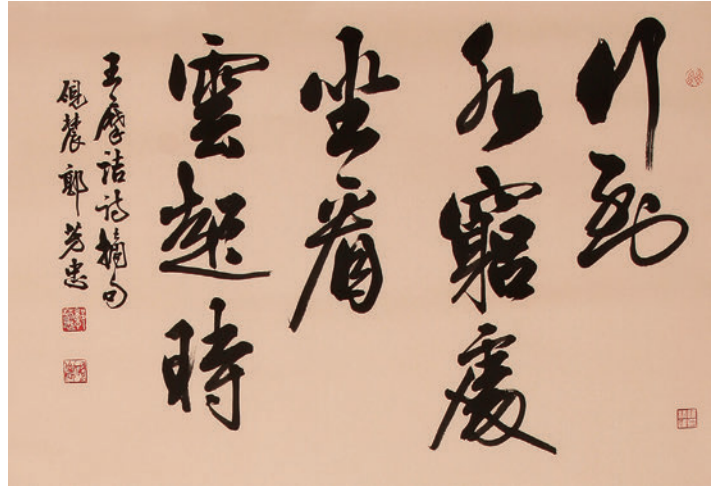 行到
水窮處
坐看
雲起時
王摩詰詩摘句
硯農 郭芳忠